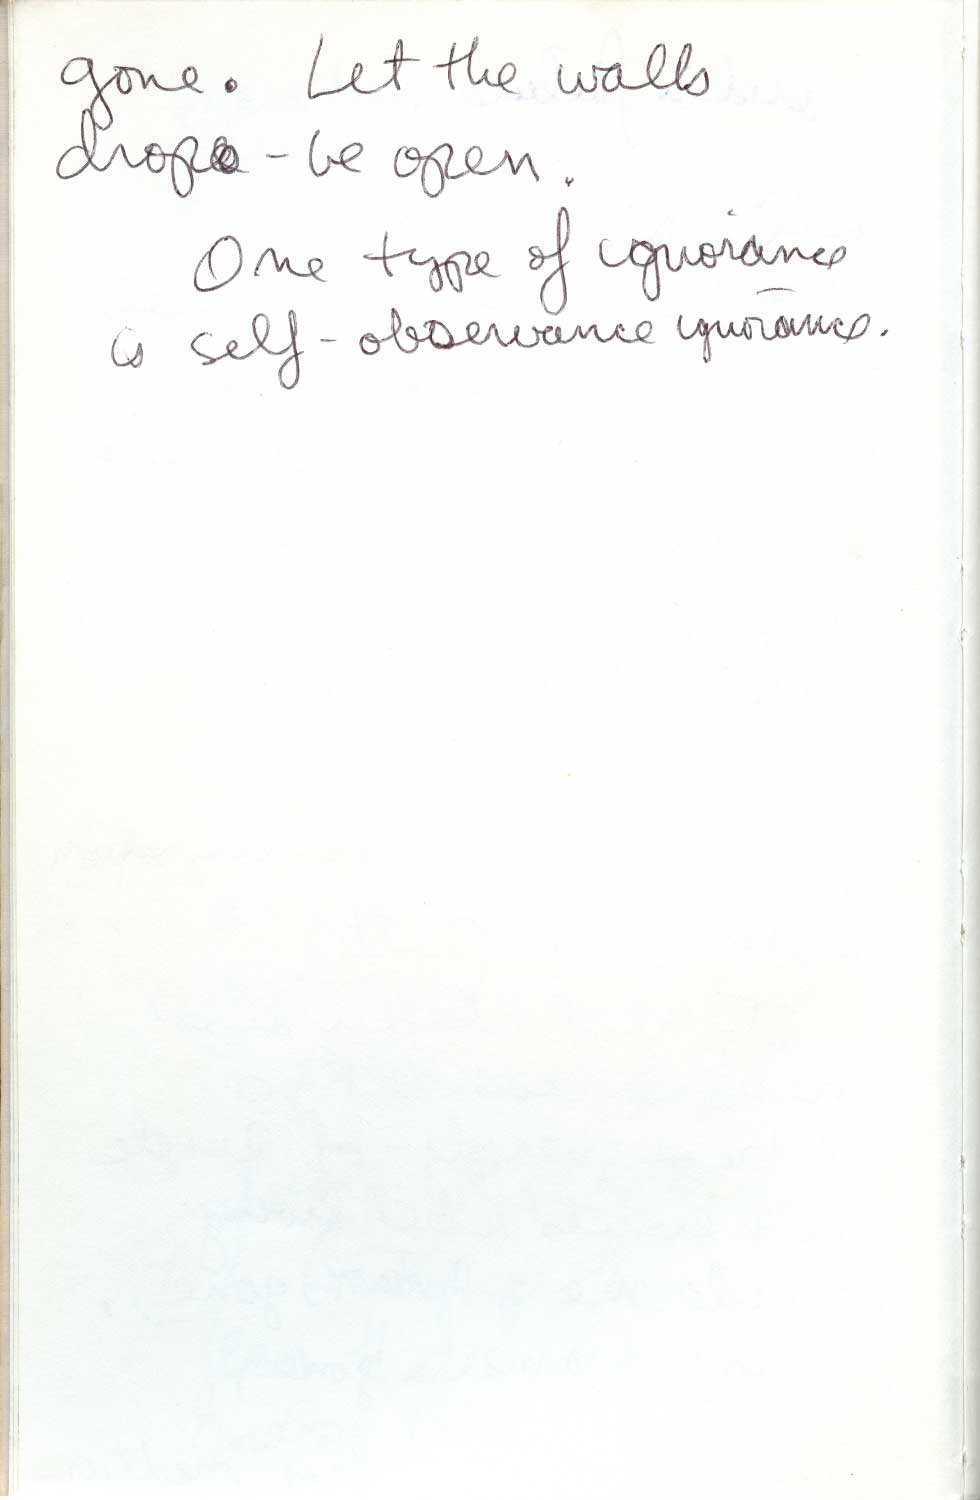 gone. Let the walls
drop - be open.
One type of ignorance
is self-observance ignorance.